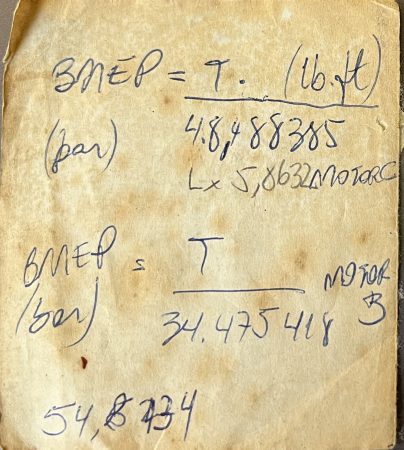 BMEP = T. (lb.ft)
(bar) 48,488385
L x 5,8632 MOTOR C
BMEP = T
(bar) 34.475418 MOTOR
B
54,8434